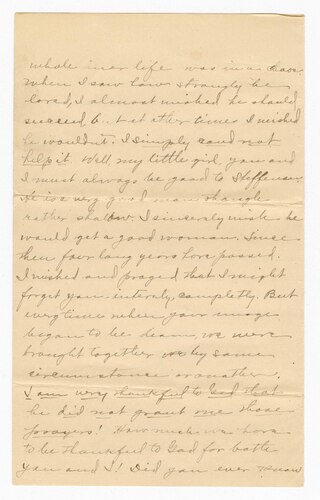 whole inner life was in a chaos.
When I saw how strongly he
loved, I almost wished he should
succeed but at other times I wished
he wouldn't. I simply could not
help it. Well my little girl, you and
I must always be good to Steffensen.
He is a very good man though
rather shallow. I sincerely wish he
would get a good woman. Since
then four long years have passed.
I wished and prayed that I might
forget you intirely, completly. But
every time when your image
began to be dean, we were
brought together by some
circumstance or another.
I am very thankful to God that
he did not grant me those
prayers! How much we have
to be thankful to God for both
you and I! Did you ever know